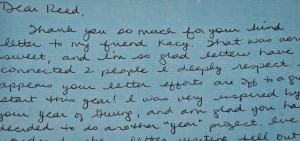 Dear Reed,
Thank you so much for your kind
letter to my friend Kacy. That was very
sweet, and I'm so glad letters have
connected 2 people I deeply respect.
appears your letter efforts are off to a g
start this year! I was very inspired by
your year of giving, and am glad you ha
decided to do another "year" project. I've
letter writing fell out